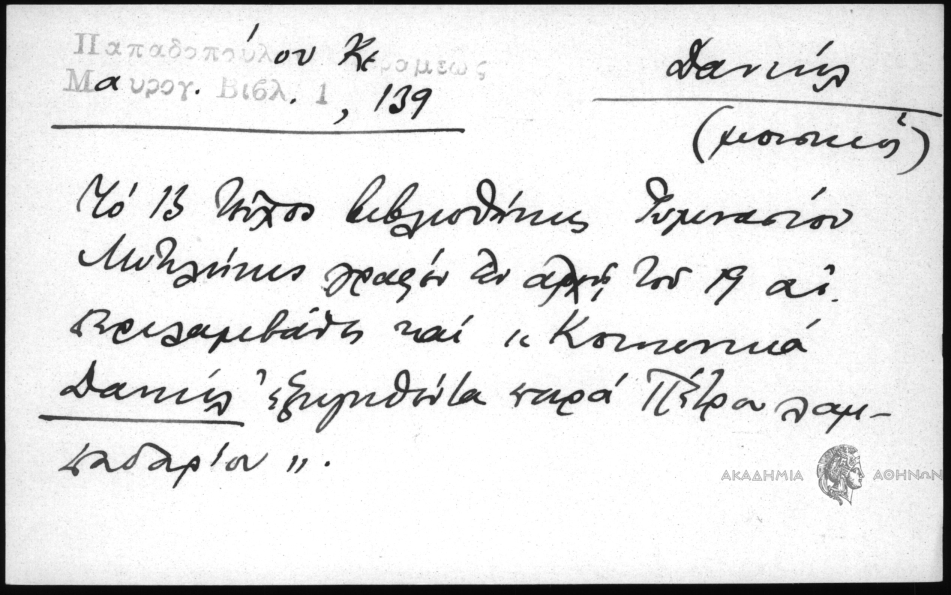 Παπαδοπούλου Κεραμέως
Μαυρογ. Βιβλ. 1, 139
Δανιήλ
(μουσικός)
Τό 13 τεῦχος βιβλιοθήκης Γυμνασίου
Μυτιλήνης γραφέν ἐν ἀρχῇ τοῦ 19 αἰ.
περιλαμβάνει καί „ Κοινωνικά
Δανιήλ ἐξηγηθέντα παρά Πέτρου λαμ-
παδαρίου „.
ΑΚΑΔΗΜΙΑ ΑΘΗΝΩΝ